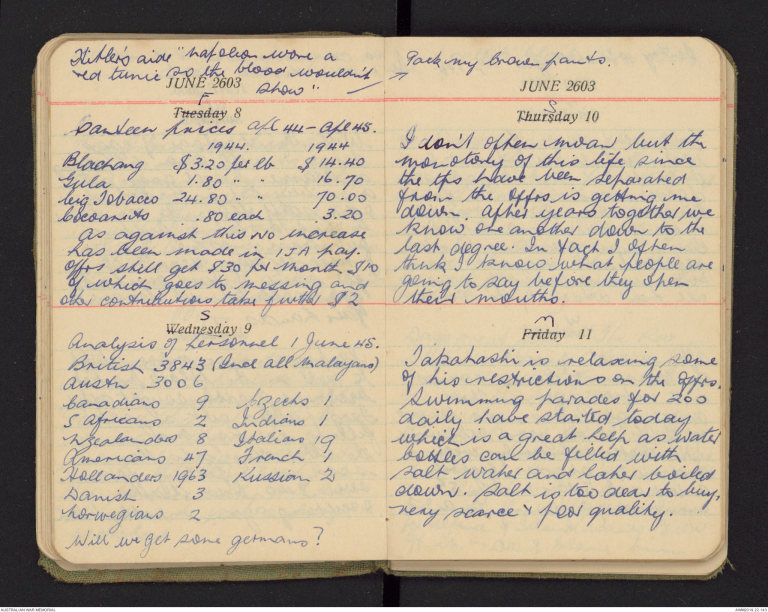 Hitler's aide "Napoleon wore a
red tunic so the blood wouldn't
show"
JUNE 2603
F
Tuesday 8
Canteen prices Apl 44 - Apl 45.
1944. 1944
Blachang $3.20 per lb $14.40
Gula 1.80 " " 16.70
big Tobacco 24.80 " " 70.00
Cocoanuts .80 each 3.20
As against this no increase
has been made in IJA pay.
Offrs still get $30 per month $10
of which goes to messing and
other contributions take further $2
S
Wednesday 9
Analysis of personnel 1 June 45.
British 3843 (Incl all Malayans)
Austn 3006
Canadians 9 Czechs 1
S Africans 2 Indians 1
N Zealanders 8 Italians 19
Americans 47 French 1
Hollanders 1963 Russian 2
Danish 3
Norwegians 2
Will we get some germans?
Pack my brown pants.
JUNE 2603
S
Thursday 10
I don't often moan, but the
monotony of this life since
the tps have been separated
from the offrs is getting me
down. After years together we
know one another down to the
last degree. In fact I often
think I know what people are
going to say before they open
their mouths.
M
Friday 11
Takahashi is relaxing some
of his restrictions on the offrs.
Swimming parades for 200
daily have started today
which is a great help as water
bottles can be filled with
salt water and later boiled
down. Salt is too dear to buy,
very scarce & poor quality.
AUSTRALIAN WAR MEMORIAL